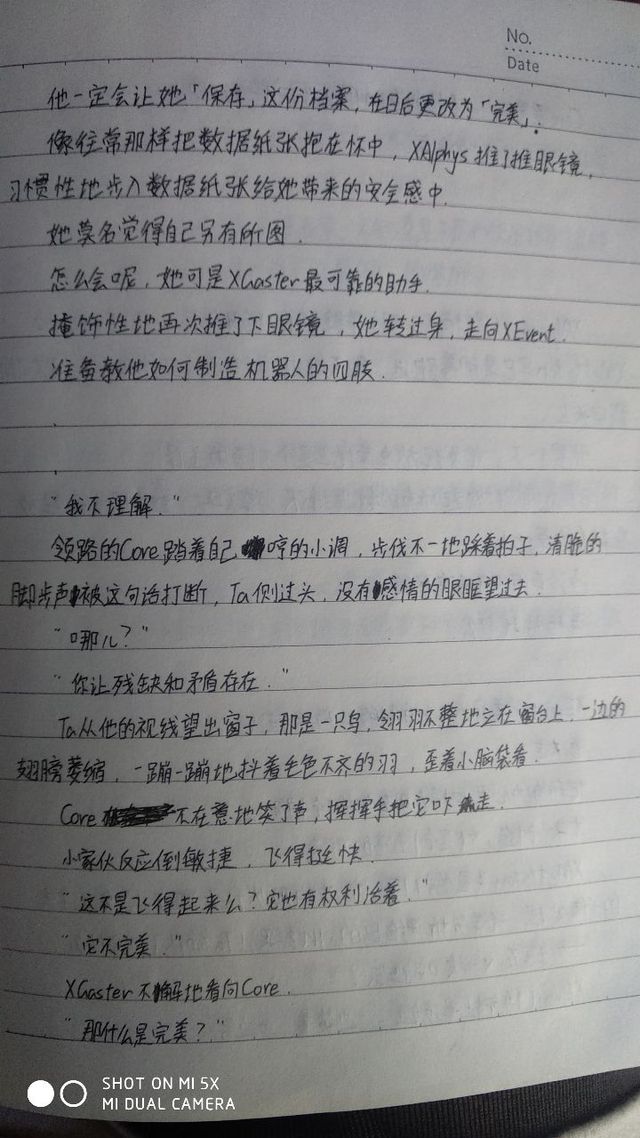 No.
Date
他一定会让她「保存」这份档案，在日后更改为「完美」.
像往常那样把数据纸张抱在怀中，XAlphys推了推眼镜，
习惯性地步入数据纸张给她带来的安全感中.
她莫名觉得自己另有所图.
怎么会呢，她可是XGaster最可靠的助手.
掩饰性地再次推了下眼镜，她转过身，走向XEvent.
准备教他如何制造机器人的四肢.
"我不理解."
领路的Core踏着自己哼的小调，步伐不一地踩着拍子，清脆的
脚步声被这句话打断，Ta侧过头，没有感情的眼眶望过去.
"哪儿？"
"你让残缺和矛盾存在."
Ta从他的视线望出窗子，那是一只鸟，翎羽不整地立在窗台上，一边的
翅膀萎缩，一蹦一蹦地抖着毛色不齐的羽，歪着小脑袋看.
Core不在意地笑了声，挥挥手把它吓走.
小家伙反应倒敏捷，飞得挺快.
"这不是飞得起来么？它也有权利活着."
"它不完美."
XGaster不解地看向Core.
"那什么是完美？"
SHOT ON MI 5X
MI DUAL CAMERA